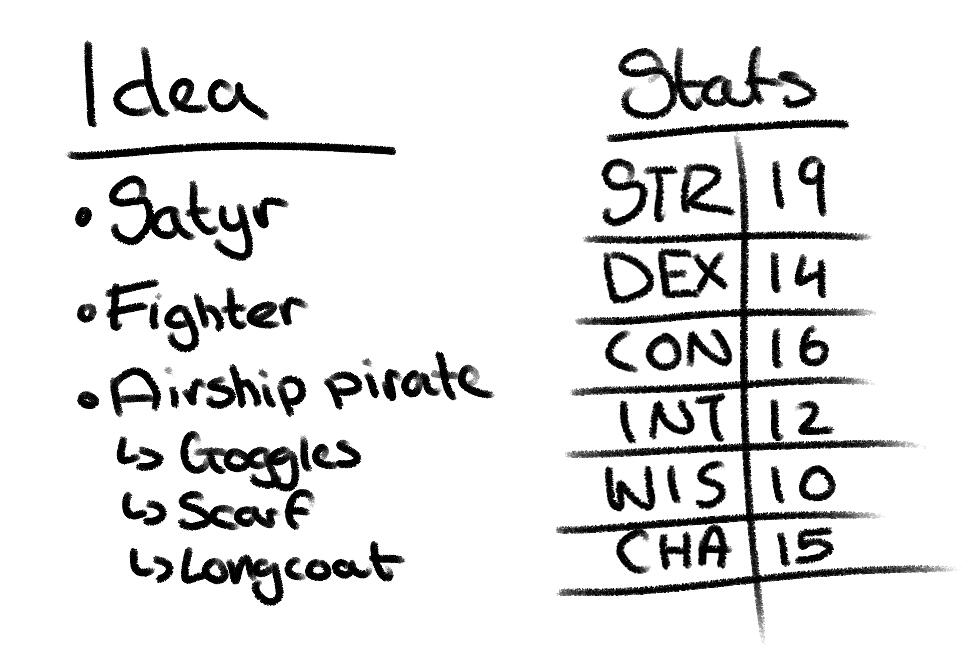 Idea
• Satyr
• Fighter
• Airship pirate
↳ Goggles
↳ Scarf
↳ Longcoat
Stats
STR 19
DEX 14
CON 16
INT 12
WIS 10
CHA 15